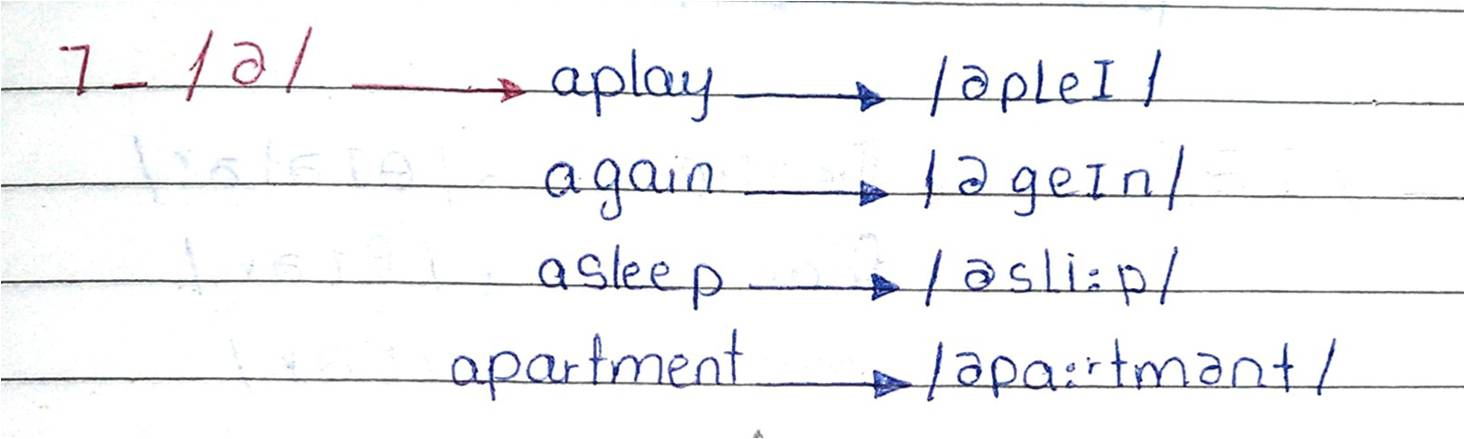 7- /ə/ → aplay → /əpleI/
again → /ə geIn/
asleep → /əsli:p/
apartment → /əpa:rtmənt/